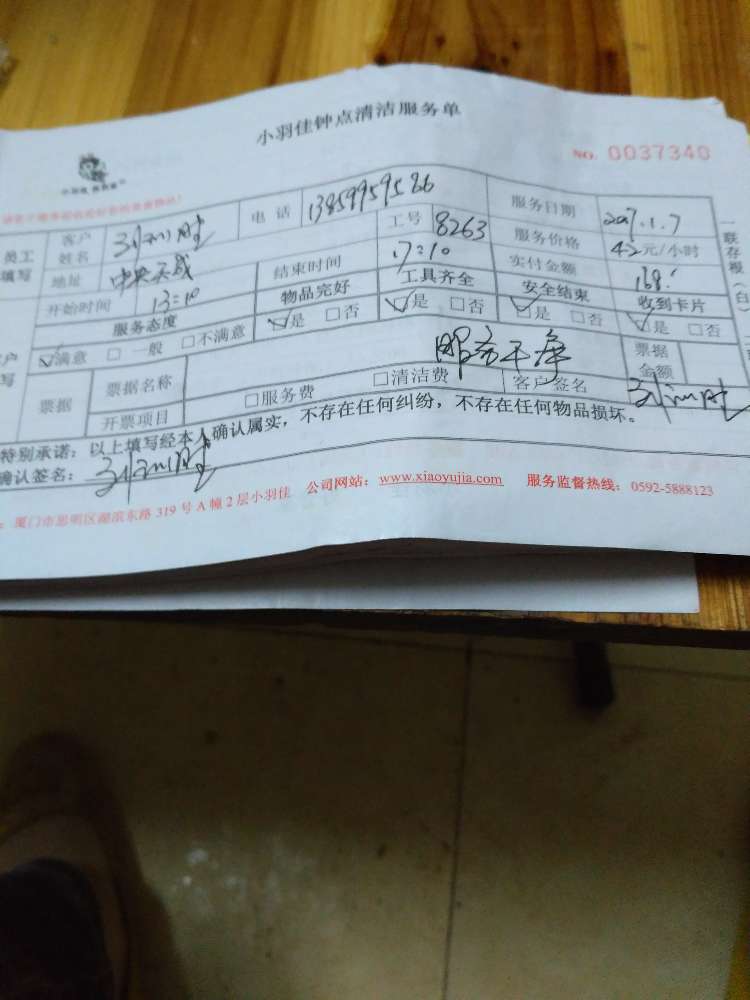 小羽佳钟点清洁服务单
NO. 0037340
员工填写 客户姓名 电话 13859959586 服务日期 2017.1.7
地址 中央天成 工号 8263 服务价格 42元/小时
开始时间 13:10 结束时间 17:10 实付金额 168
服务态度 物品完好 工具齐全 安全结束 收到卡片
☑满意 □一般 □不满意 ☑是 □否 ☑是 □否 ☑是 □否 ☑是 □否
票据 票据名称 票据金额
开票项目 □服务费 □清洁费 客户签名
特别承诺：以上填写经本人确认属实，不存在任何纠纷，不存在任何物品损坏。
确认签名：
厦门市思明区湖滨东路 319 号 A 幢 2 层小羽佳 公司网站：www.xiaoyujia.com 服务监督热线：0592-5888123
一联存根（白）